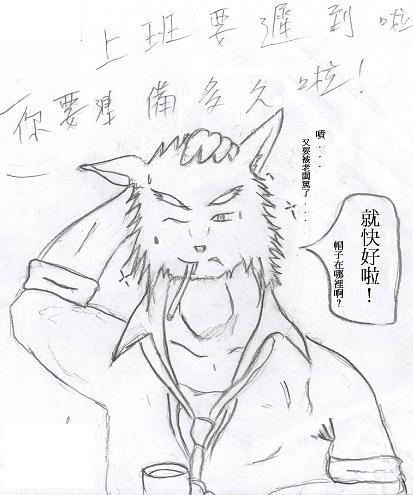 上班要遲到啦
你要準備多久啦!
嘖....
又要被老闆罵了...
就快好啦!
帽子在哪裡啊?